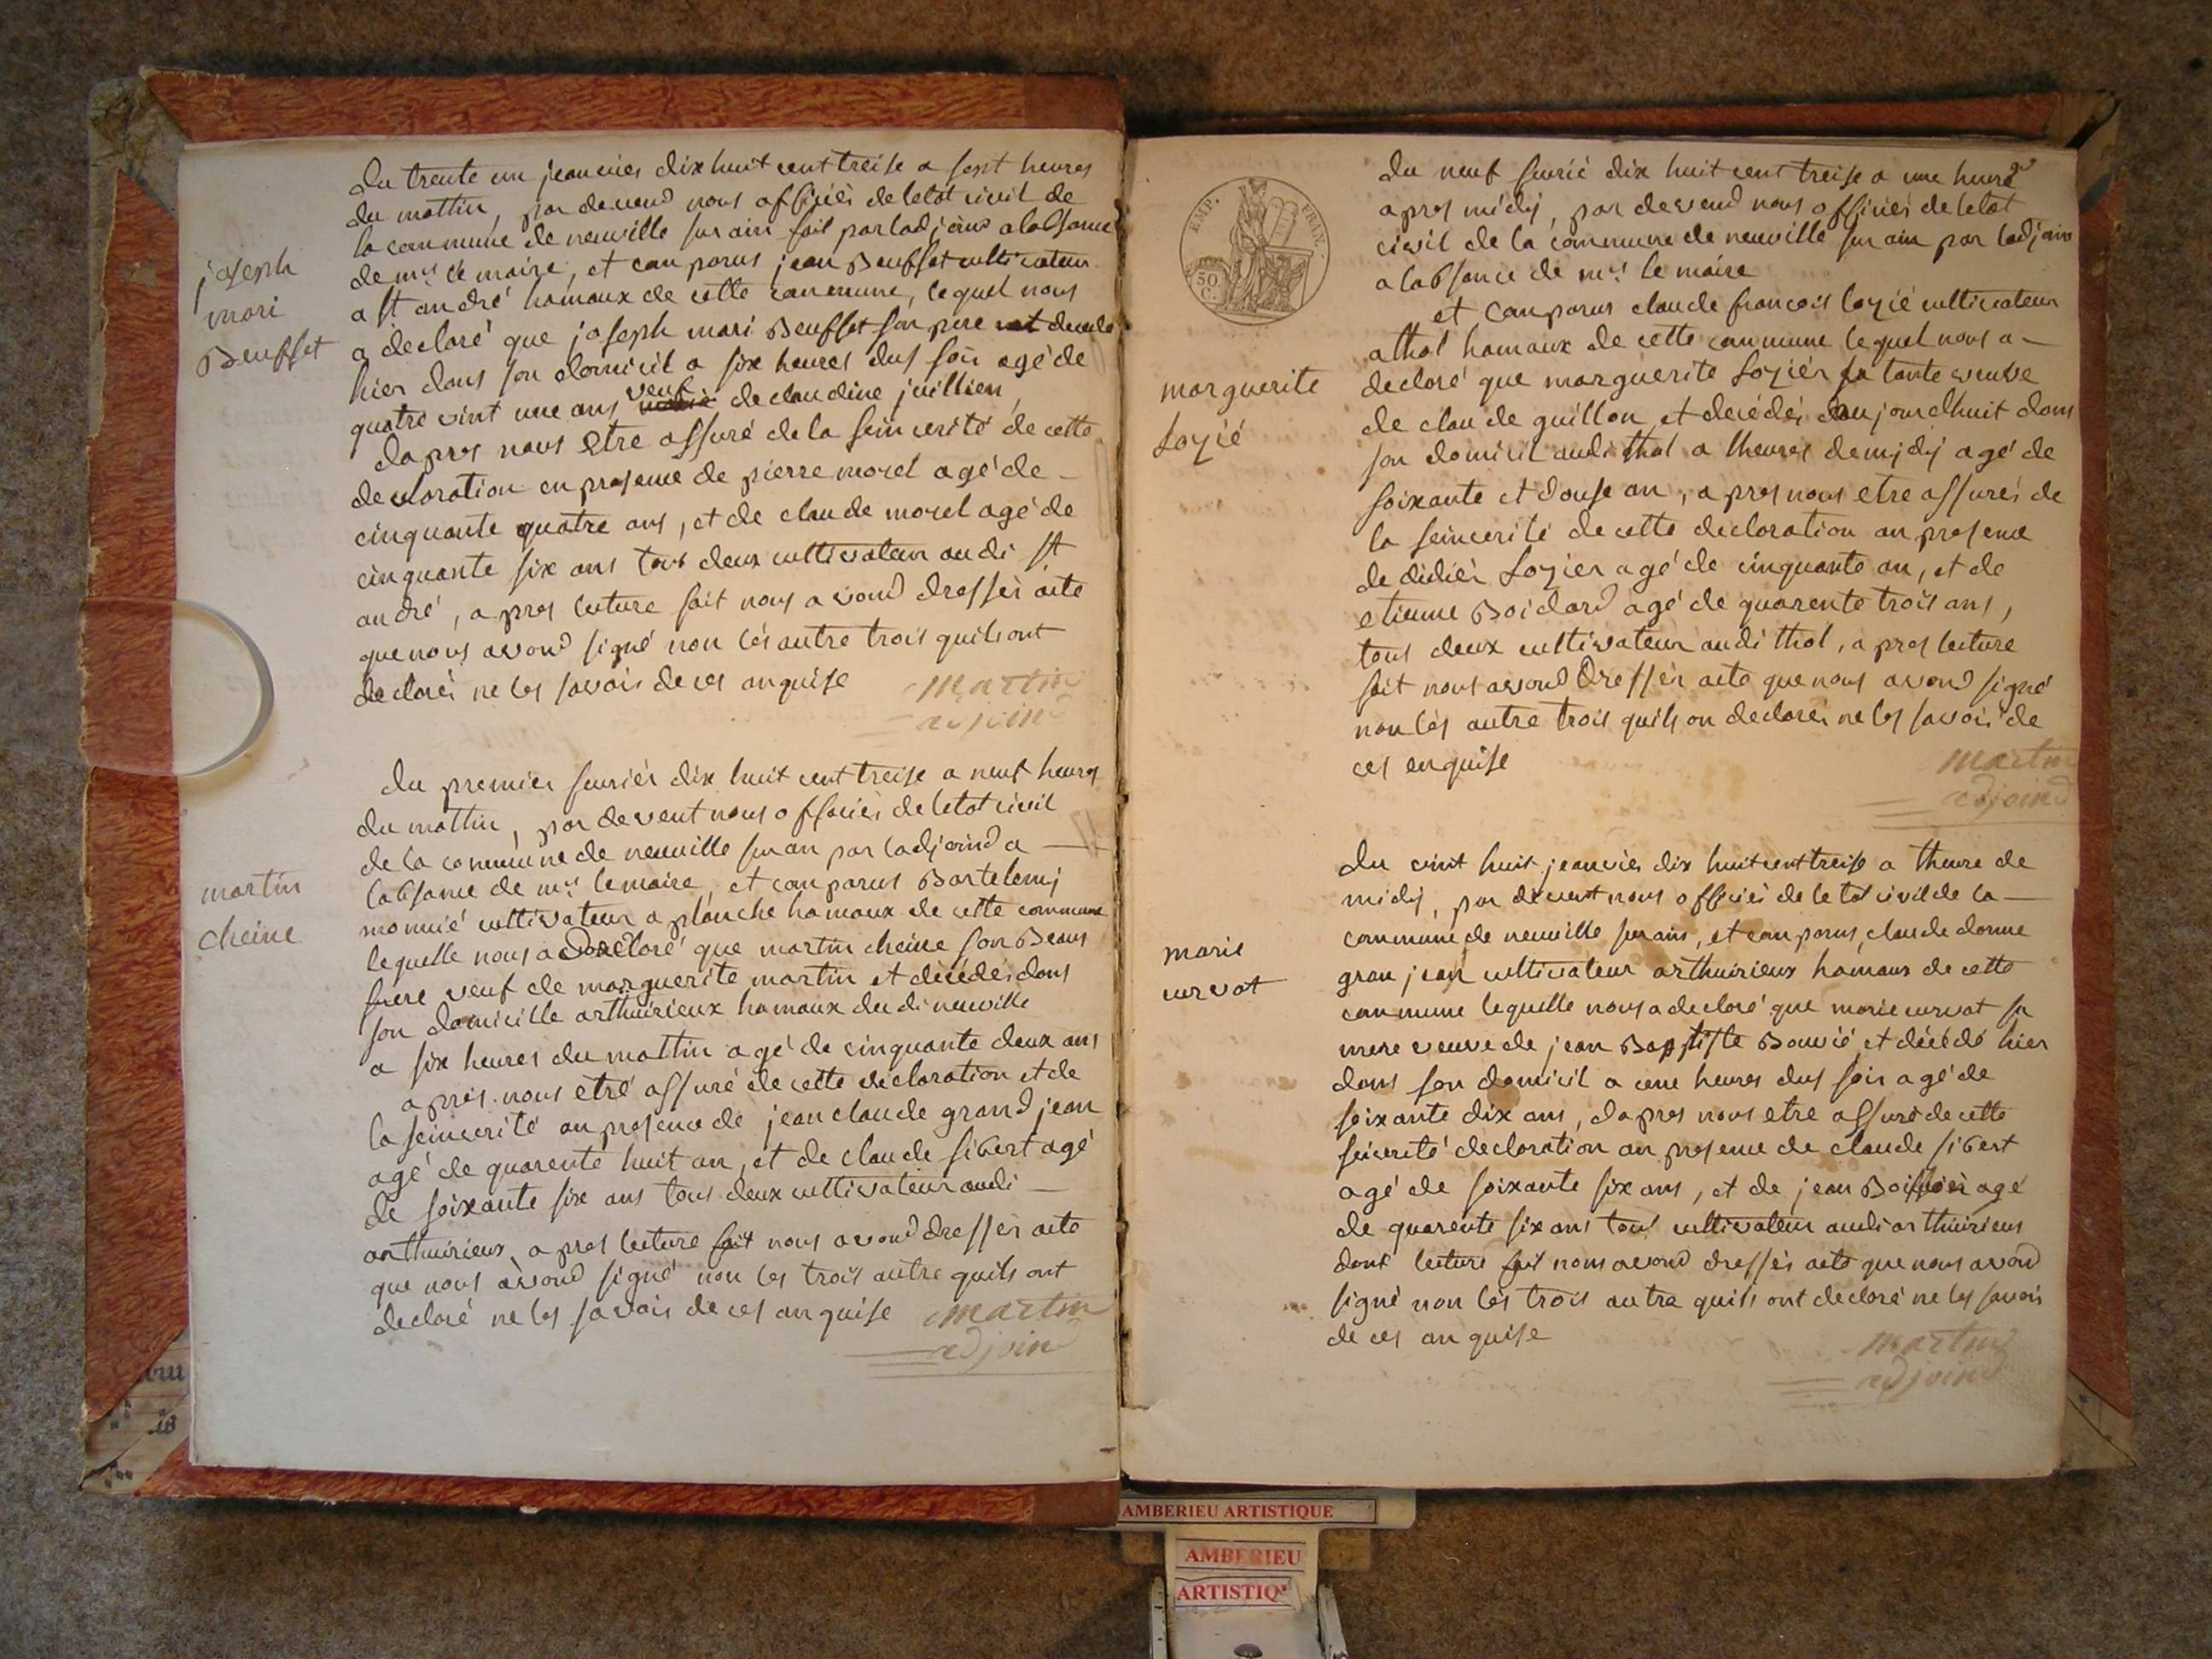 du trente un jeanvier dix huit cent treise a sept heures
du mattin, par devend nous officiér de letat civil de
la commune de neuville sur ain fait par ladjoind a labsance
de mr. le maire, et conparus jean Beufset cultivateur
a st andré hamaux de cette commune, lequel nous
a declaré que joseph mari Beufset son pere et decede
hier dans son domicil a six heures dus soir agé de
quatre vint une ans veuf de claudine juillien,
joseph
mari
Beufset
dapres nous etre assuré de la seincerité de cette
declaration en presence de pierre morel agé de
cinquante quatre ans, et de claude morel agé de
cinquante six ans tous deux cultivateur audi st
andré, apres lecture fait nous avond dressér acte
que nous avond signé non lés autre trois quils ont
declarér ne les savoir de ces anquise martin
adjoind
du premier fevriér dix huit cent treise a neuf heures
du mattin, par devent nous officiér de letat civil
de la commune de neuville sur an par ladjoind a
labsance de mr. lemaire, et conparus Bartelemj
monnié cultivateur a planche hamaux de cette commune
lequelle nous a declaré que martin cheine son Beaus
frere veuf de marguerite martin et décédér dans
son domicille arthuirieux hamaux du di neuville
a six heures du mattin agé de cinquante deux ans
martin
cheine
aprés nous etré assuré de cette declaration et de
la seincerité an presence de jean claude grand jean
agé de quarente huit an, et de claude sibert agé
de soixante six ans tous deux cultivateur audi
arthuirieux, apres lecture fait nous avond dressér acte
que nous avond signé non les trois autre quils ont
declaré ne les savoir de ces anquise martin
adjoind
EMP. FRAN.
50 C.
du neuf fevrié dix huit cent treise a une heure
apres midÿ, par devend nous officiér de letat
civil de la commune de neuville sur ain par ladjoin
a labsance de mr. le maire
et conparus claude francois loyié cultivateur
athol hamaux de cette commune lequel nous a
declaré que marguerite Loyiér sa tante veuve
de claude guillon et decédér aujourdhuit dans
son domicil audi thol a lheures demjdÿ agé de
soixante et douse an, apres nous etre assurér de
la seincerité de cette declaration an presence
de didiér Loyier agé de cinquante an, et de
etienne Boidard agé de quarente trois ans,
tous deux cultivateur audi thol, apres lecture
fait nous avond dressér acte que nous avond signé
non lés autre trois quils on declarér ne les savoir de
ces enquise martin
adjoind
marguerite
Loyié
du vint huit jeanvier dix huit cent treise a lheure de
midÿ, par devent nous officiér de letat civil de la
commune de neuville sur ain, et conparus, claude
gran jean cultivateur arthuirieux hamaux de cette
commune lequelle nous a declaré que marie curvat sa
mere veuve de jean Baptiste Bouvié et décédé hier
dans son domicil a une heures dus soir agé de
soixante dix ans, dapres nous etre assuré de cette
seicerité declaration an presence de claude sibert
agé de soixante six ans, et de jean agé
de quarente six ans tous cultivateur audi arthuirieux
dont lecture fait nous avond dressér acte que nous avond
signé non lés trois autre quils ont declaré ne les savoir
de ces anquise martin
adjoind
marie
curvat
AMBERIEU ARTISTIQUE
AMBERIEU
ARTISTIQ